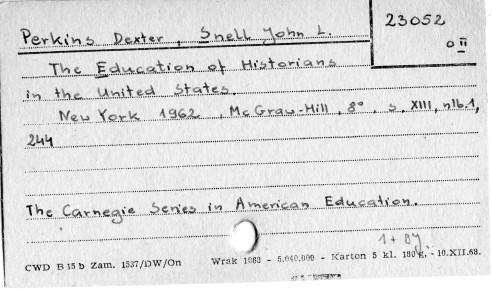 23052
0 II
Perkins Dexter, Snell John L.
The Education of Historians
in the United States.
New York 1962, McGraw-Hill, 8°, s. XIII, nlb.1,
244
The Carnegie Series in American Education.
1 + By.
CWD B 15 b Zam. 1537/DW/On Wrak 1963 - 5.040.000 - Karton 5 kl. 180 g. - 10.XII.68.